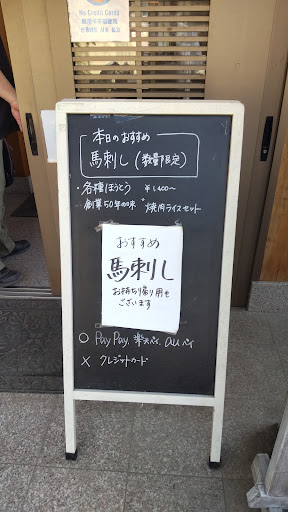 No Credit Cards
本日のおすすめ
馬刺し(数量限定)
・各種ほうとう ¥1,400〜
創業50年の味 焼肉ライスセット
おすすめ
馬刺し
お持ち帰り用も
ございます
○ PayPay、楽天ペイ、auペイ
× クレジットカード